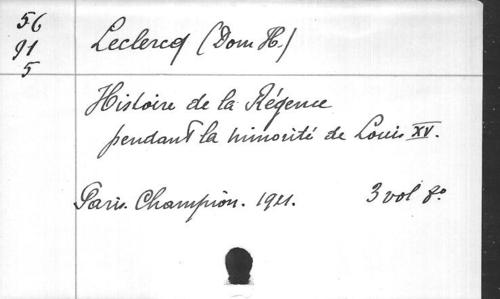 56
91
5
Leclercq (Dom H.)
Histoire de la Régence
pendant la minorité de Louis XV.
Paris. Champion. 1921. 3 vol 8º